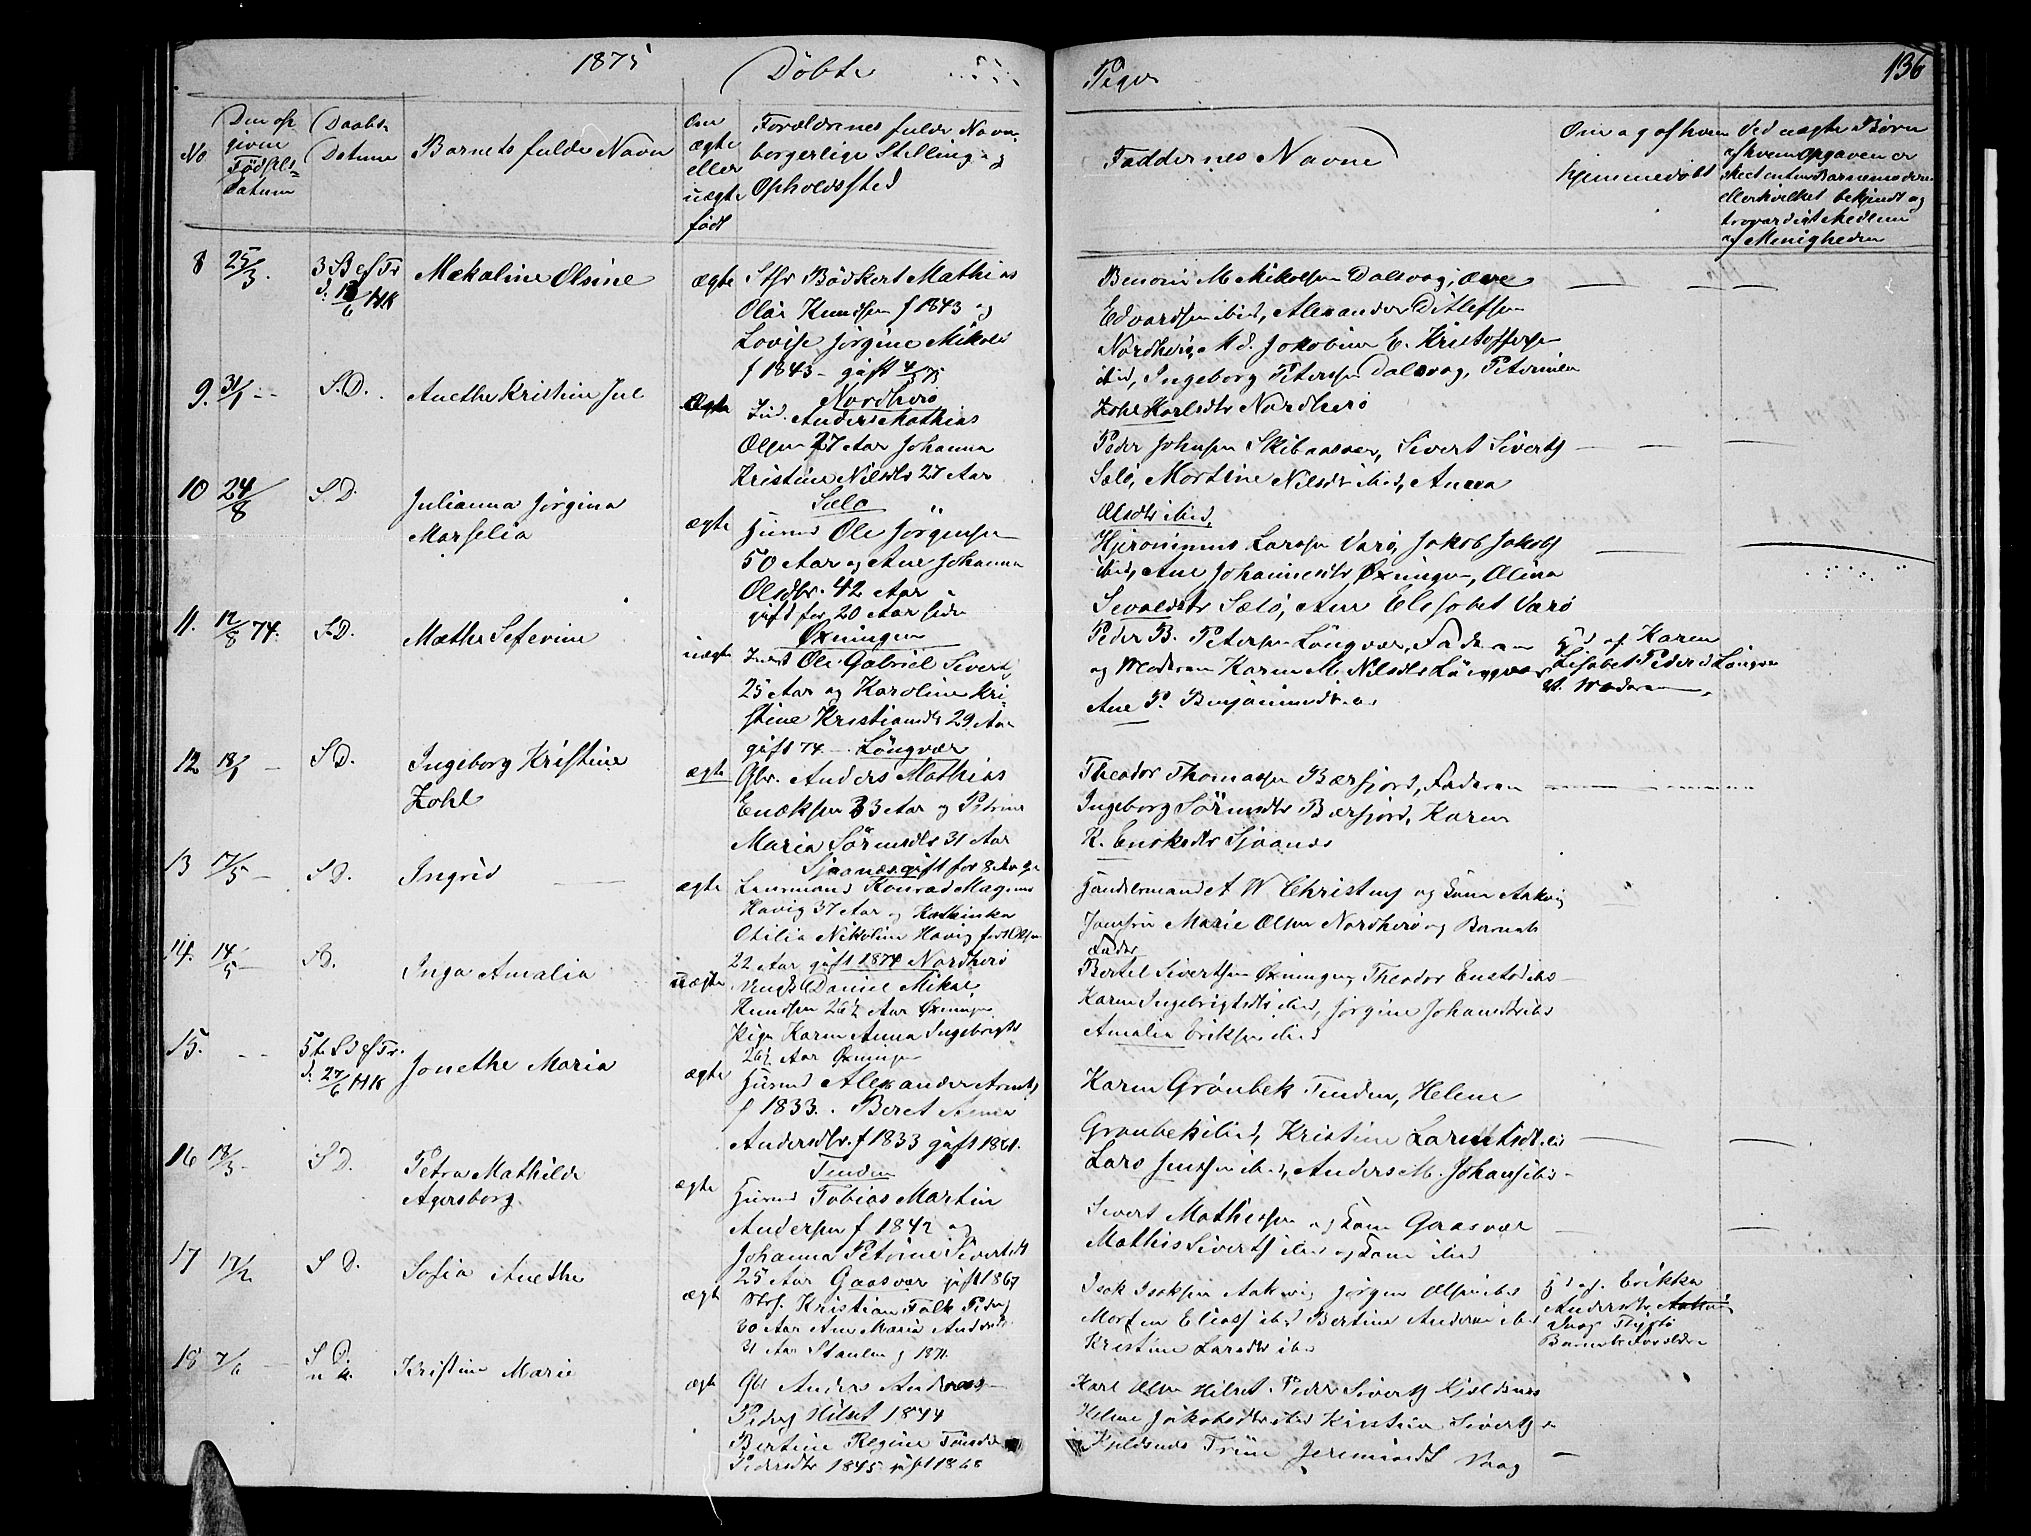 1875
Døbte
Piger
136
No
Den op
givne
Fødsels-
datum
Daabs-
Datum
Barnets fulde Navn
Om
ægte
eller
uægte
født
Forældrenes fulde Navn
borgerlige Stilling og
Opholdssted
Faddernes Navne
Om og af hvem
hjemmedøbt
Ved uægte Børn
af hvem Opgaven er
skeet enten Barnemoderen
eller hvilket bekjendt og
troværdigt Medlem
af Menigheden
8 25/3.
3 S Ef Tr
d: /6 HK
Mekaline Olsine
ægte
Bödkert Mathias
Olai Knudsen f 1843 og
Lovise Jörgine Mikels
f 1843 - gift 75
Nordherö
M. Mikelsen Dalsvag,
Edvardsen ibid, Alexander Ditlefsen
Nordherö, Jakobine E. Kristoffersen
ibid, Ingeborg Petersen Dalsvag, Petrine
Zohl Karlsdtr Nordherö
9. 31/1 --
S. D.
Anethe Kristine Jul
Ægte
Ind. Anders Mathias
Olsen 27 Aar Johanna
Kristine Nilsdtr 27 Aar
Sælö
Peder Johnsen Skibaasvær, Sivert Siverts
Sælö, Mortine Nilsdt ibid, Anna
Olsdtr ibid,
10 24/8
S. D.
Julianna Jörgina
Marselia
ægte
Husmd Ole Jörgensen
50 Aar og Ane Johanna
Olsdtr. 42 Aar
gift for 20 Aar siden
Öxningen
Hjeronimus Larssen Varö, Jakob Jakobs
ibid, Ane Johannesdtr Öxningen, Olina
Sevaldsdtr Sælö, Ane Elisabet Varö
11. 12/8 74.
S. D.
Mæthe Seferine
uægte
Inds Ole Gabriel Siverts
25 Aar og Karoline Kri-
stine Kristiansdtr 29 Aar
gift 74 - Löngvær
Peder B. Petersen Löngvær, Faderen
og Moderen Karen M. Nilsdtr Löngvær
Ane P. Benjaminsdtr
Hjd af Karen
Lisabet Peders Löngvær
st. Moderen
12 18/1 -
S. D.
Ingeborg Kristine
Zohl
ægte
Gbr. Anders Mathias
Enoksen 33 Aar og Petrine
Maria Sörensdtr 31 Aar
Sjaanæs gift for 8 Aar sn
Theodor Thomassen Bærfjord, Faderen
Ingeborg Sörensdtr Bærfjord, Karen
K. Enoksdtr Sjaanæs
13 17/5 -
S. D.
Ingrid
ægte
Lensmand Konrad Magnus
Havig 37 Aar og Kathinka
Otilia Nikoline Havig født Olsen
22 Aar gift 1874 Nordherö
Handelsmand A W Christensen og Kone Aakvig
Jomfru Marie Olsen Nordherö og Barnets
Fader
14. 14/5 -
S. D.
Inga Amalia
uægte
Ungk Daniel Mikal
Knudsen 26½ Aar Öxningen
Pige Karen Anna Ingebrigts
26½ Aar Öxningen
Bertel Sivertsen Öxningen, Theodor
Karen Ingebrigtsdtr ibid, Jörgine Johansdtr ibd
Amalia Eriksen ibid
15. - -
5t. S Ef Tr.
d. 27/6 HK
Jonethe Maria
ægte
Husmd Alexander Arnts
f 1833. Beret Anna
Andersdtr. f 1833 gift 1861.
Tenden
Karen Grönbek Tenden, Helene
Grönbek ibid, Kristine Larentsdtr ibid
Lars Jensen ibid, Anders M. Johans ibd -
16 13/3 -
S. D.
Petra Mathilde
Agersborg
ægte
Husmd Tobias Martin
Andersen f 1842 og
Johanna Petrine Sivertsdt
25 Aar Gaasvær gift 1867
Sivert Mathisen og Kone Gaasvær
Mathis Siverts ibid og Kone ibid
17 17/2
S. D.
Sofia Anethe
ægte
Kristian Falk Peders
30 Aar Ane Maria Andersdt
31 Aar Staulen g 1871.
Isak Isaksen Aakvig Jörgen Olsen ibd
Morten Elias ibd Bertine Andersen ibd
Kristine Larsdtr ibd
Hjd af Erikka
Andersdtr Aakvig
Barnets Forældre
18 7/6 -
S D.
Kristine Marie
ægte
Gbr Anders Andreas
Peders Hilset 1844
Bertine Regine
Pedersdtr 1845 gift 1868
Karl Olsen Hilset. Peder Siverts Kjeldsnes
Helene Jakobsdtr ibid Kirstine Siverts
Kjeldsnes Trine Jeremiasdt Vaag